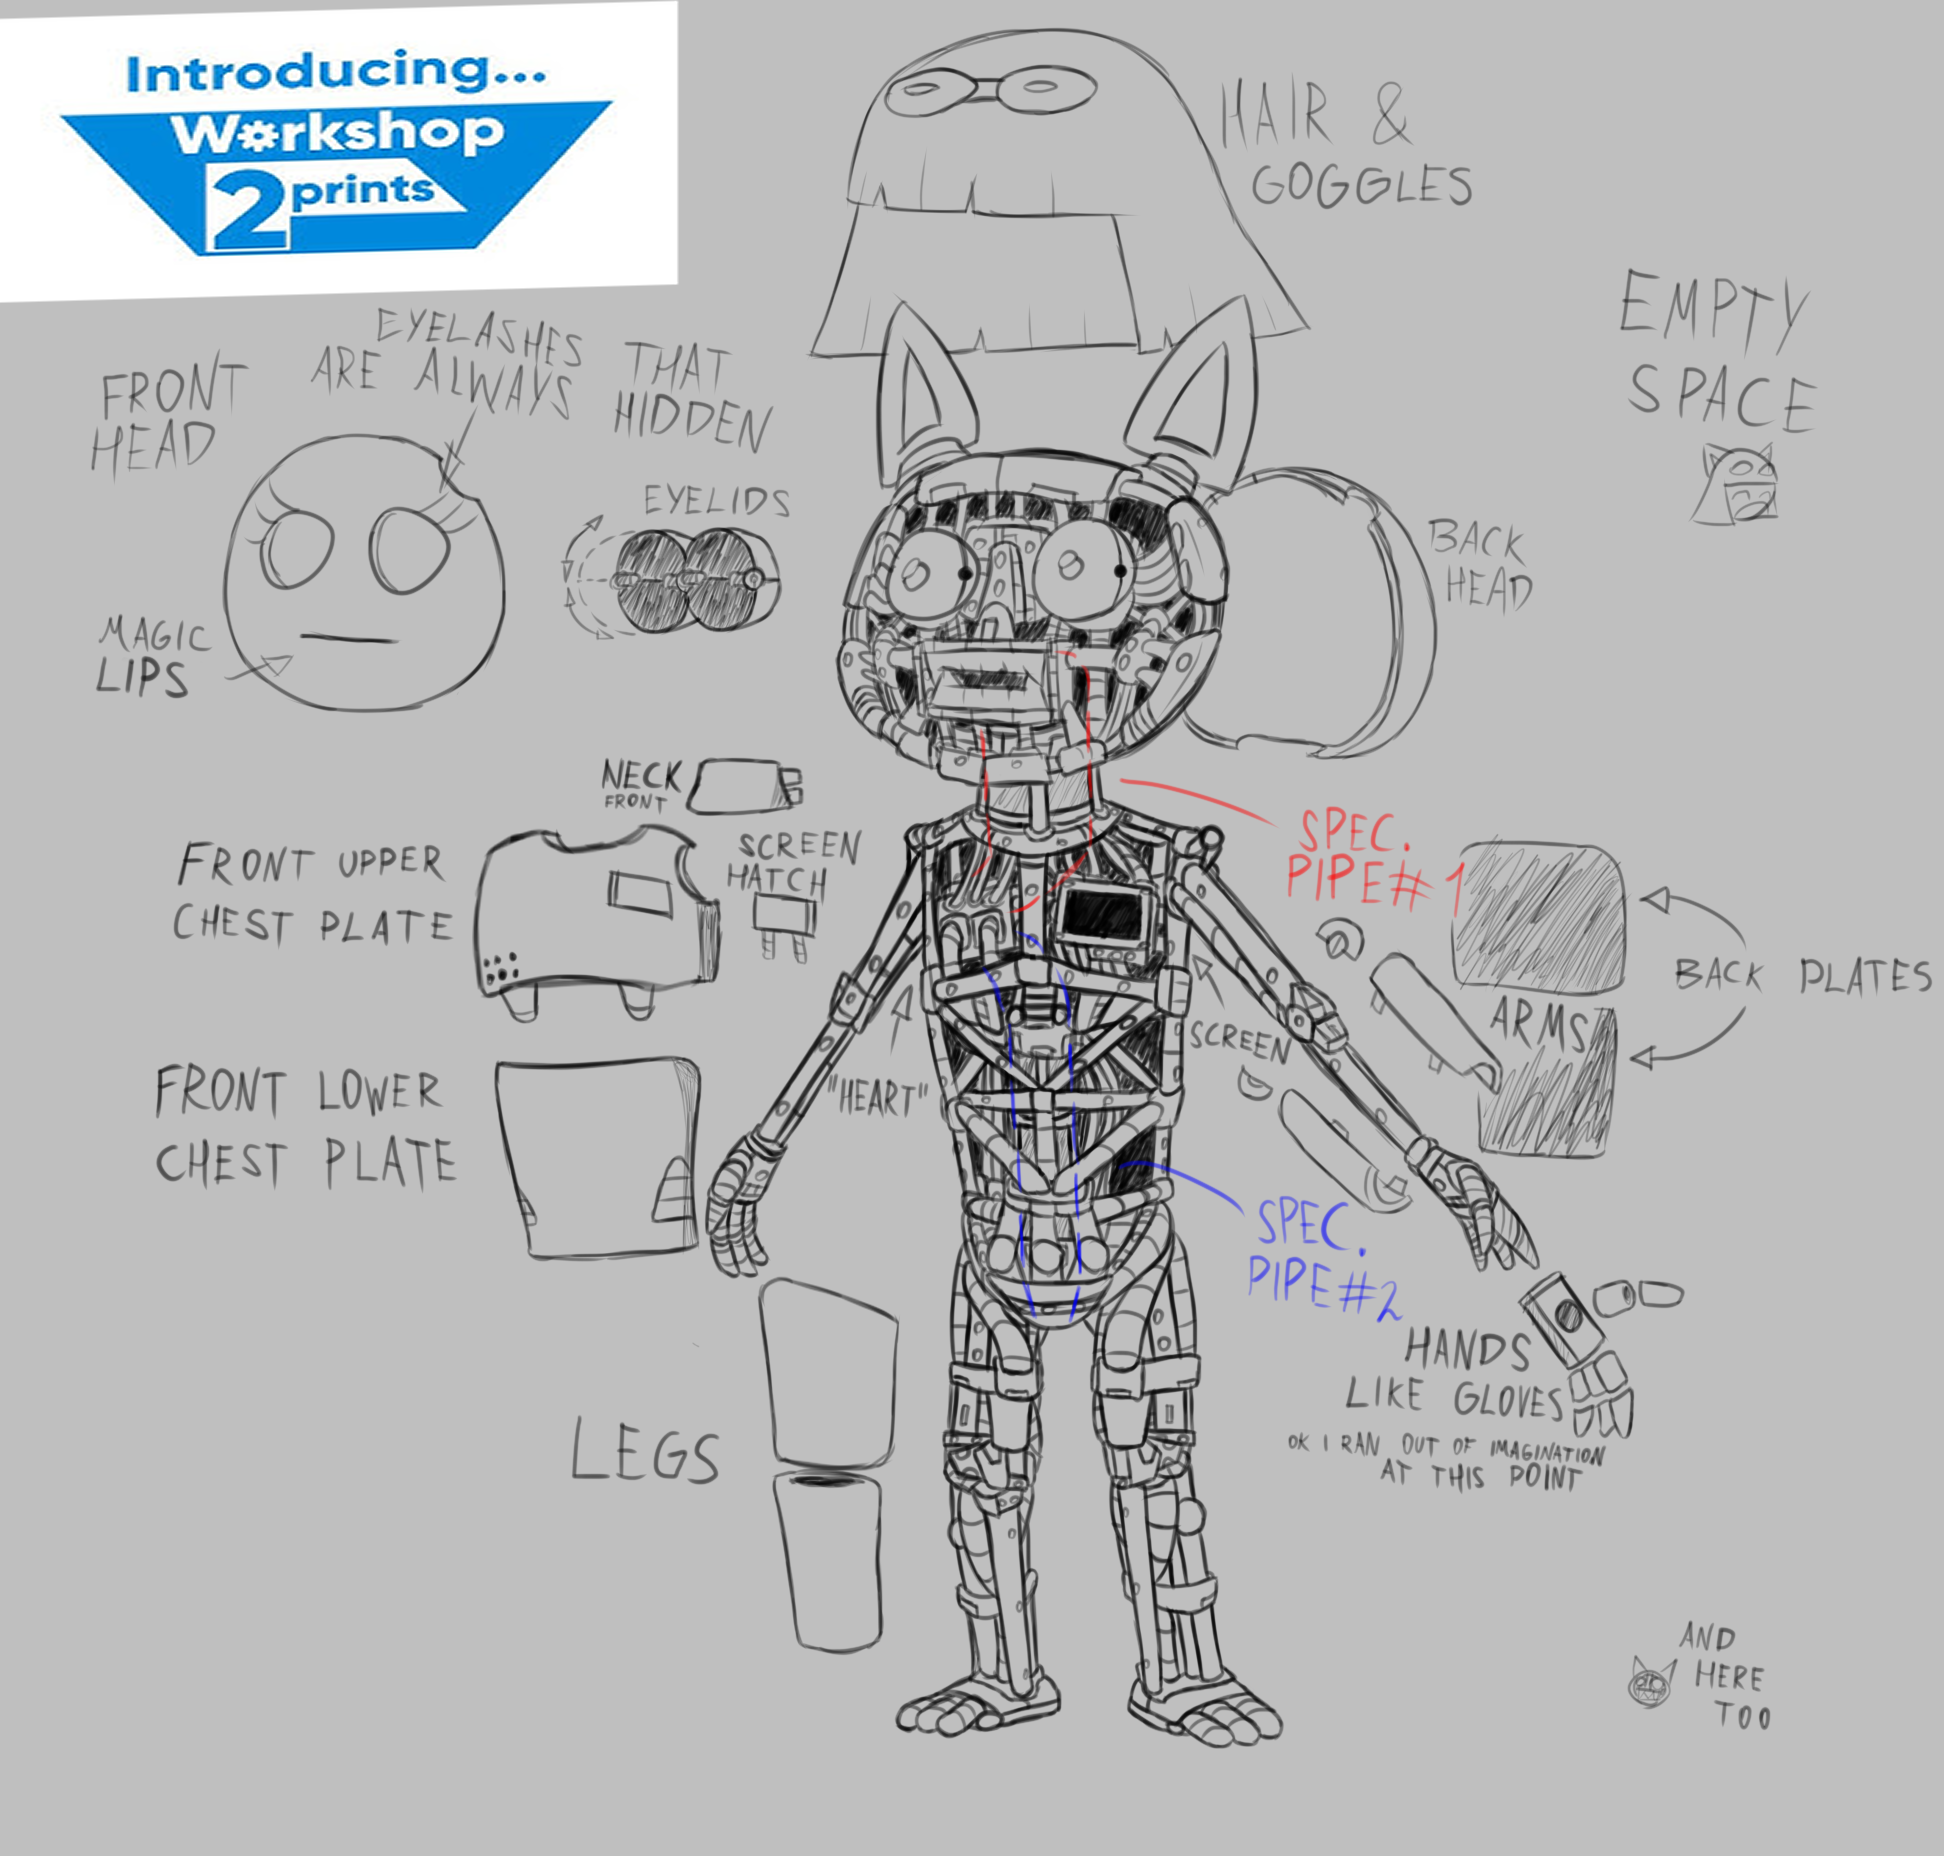 Introducing...
Workshop
2prints
HAIR &
GOGGLES
EMPTY
SPACE
FRONT
HEAD
EYELASHES
ARE ALWAYS
THAT
HIDDEN
EYELIDS
MAGIC
LIPS
BACK
HEAD
NECK
FRONT
SCREEN
HATCH
FRONT UPPER
CHEST PLATE
SPEC.
PIPE#1
BACK PLATES
ARMS
SCREEN
"HEART"
FRONT LOWER
CHEST PLATE
SPEC.
PIPE#2
HANDS
LIKE GLOVES
OK I RAN OUT OF IMAGINATION
AT THIS POINT
LEGS
AND
HERE
TOO